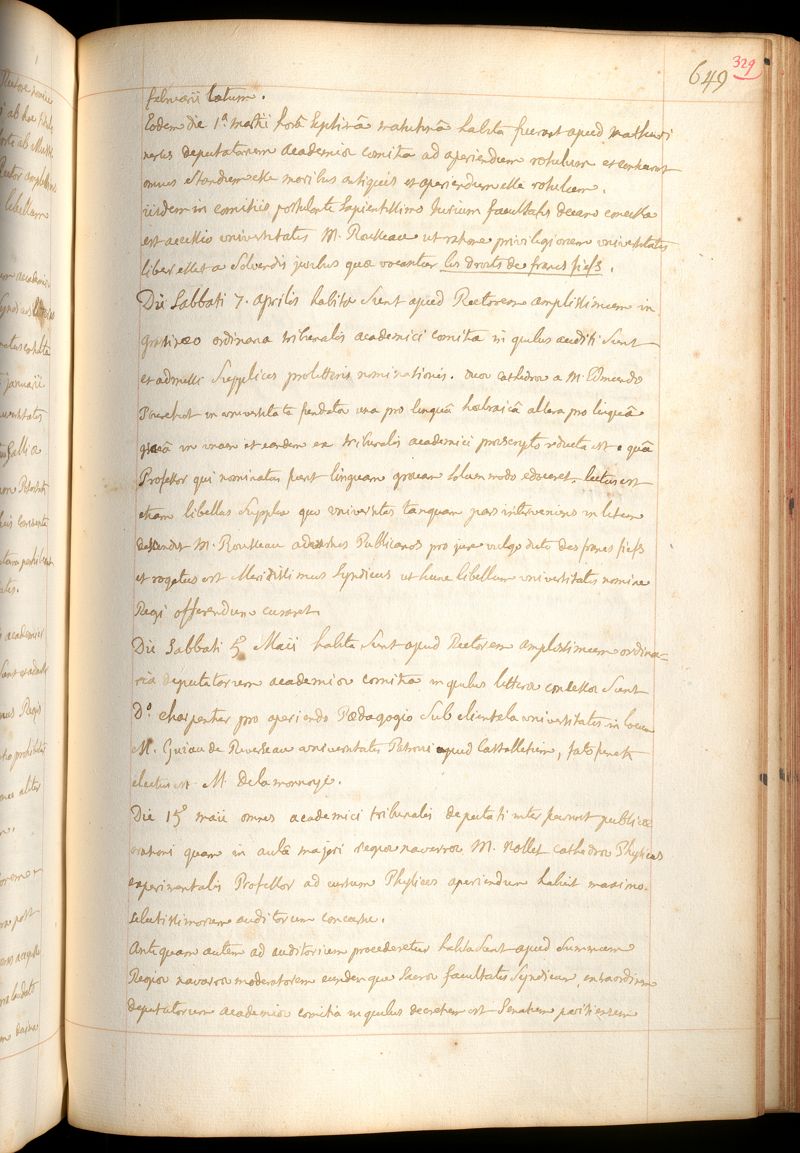 649
329
februarii latum.
Eodem die 1ª. martii horâ Septimâ matutinâ habita fuerunt apud Mathuri
nenses deputatorum academiæ comitia ad aperiendum rotulum et censuerunt
omnes standum esse moribus antiquis et aperiendum esse rotulum.
iisdem in comitiis postulante Sapientissimo Jurium facultatis decano concessa
est accessio universitatis M. Rousseau ut ratione privilegiorum universitatis
liber esset a Solvendis juribus quæ vocantur les droits de francs fiefs.
Die Sabbati 7. aprilis habita Sunt apud Rectorem amplissimum in
ordinaria tribunalis academici comitia in quibus auditi Sunt
et admissi Supplices pro litteris nominationis. duæ cathedræ a M. Edmundo
Pourchot in universitate fundatæ una pro linguâ hæbraicâ altera pro linguâ
græcâ in unam et eandem ex tribunalis academici præscripto reducta est. quâ
Professor qui nominatus linguam græcam solummodo edoceret. lectus est
etiam libellus Supplex quo universitas tanquam pars interveniens in litem
M. Rousseau adversus Publicanos pro jure vulgo dicto des francs fiefs
et rogatus est Meritissimus Syndicus ut hunc libellum universitatis nomine
Regi offerendum curaret
Die Sabbati 5 Maii habita Sunt apud Rectorem amplissimum ordina=
ria deputatorum academiæ comitia in quibus litteræ concessæ Sunt
D°. charpentier pro aperiendo Pædagogio Sub clientela universitatis in locum
M. Guiau de Reverseau universitatis Patroni apud Castelletum, fato functi
electus est M. delamonnoye.
Die 15° maii omnes academici tribunalis deputati interfuerunt publicæ
orationi quam in aulâ majori regiæ navarræ M. Nollet cathedræ Physices
experimentalis Professor ad cursum Physices aperiendum habuit maximo
selectissimorum auditorum concursu.
Antequam autem ad auditorium procederetur habita Sunt apud Summum
Regiæ navarræ moderatorem eundemque Sacræ facultatis Syndicum, extraordinaria
deputatorum academiæ comitia in quibus decretum est Senatum parisiensem